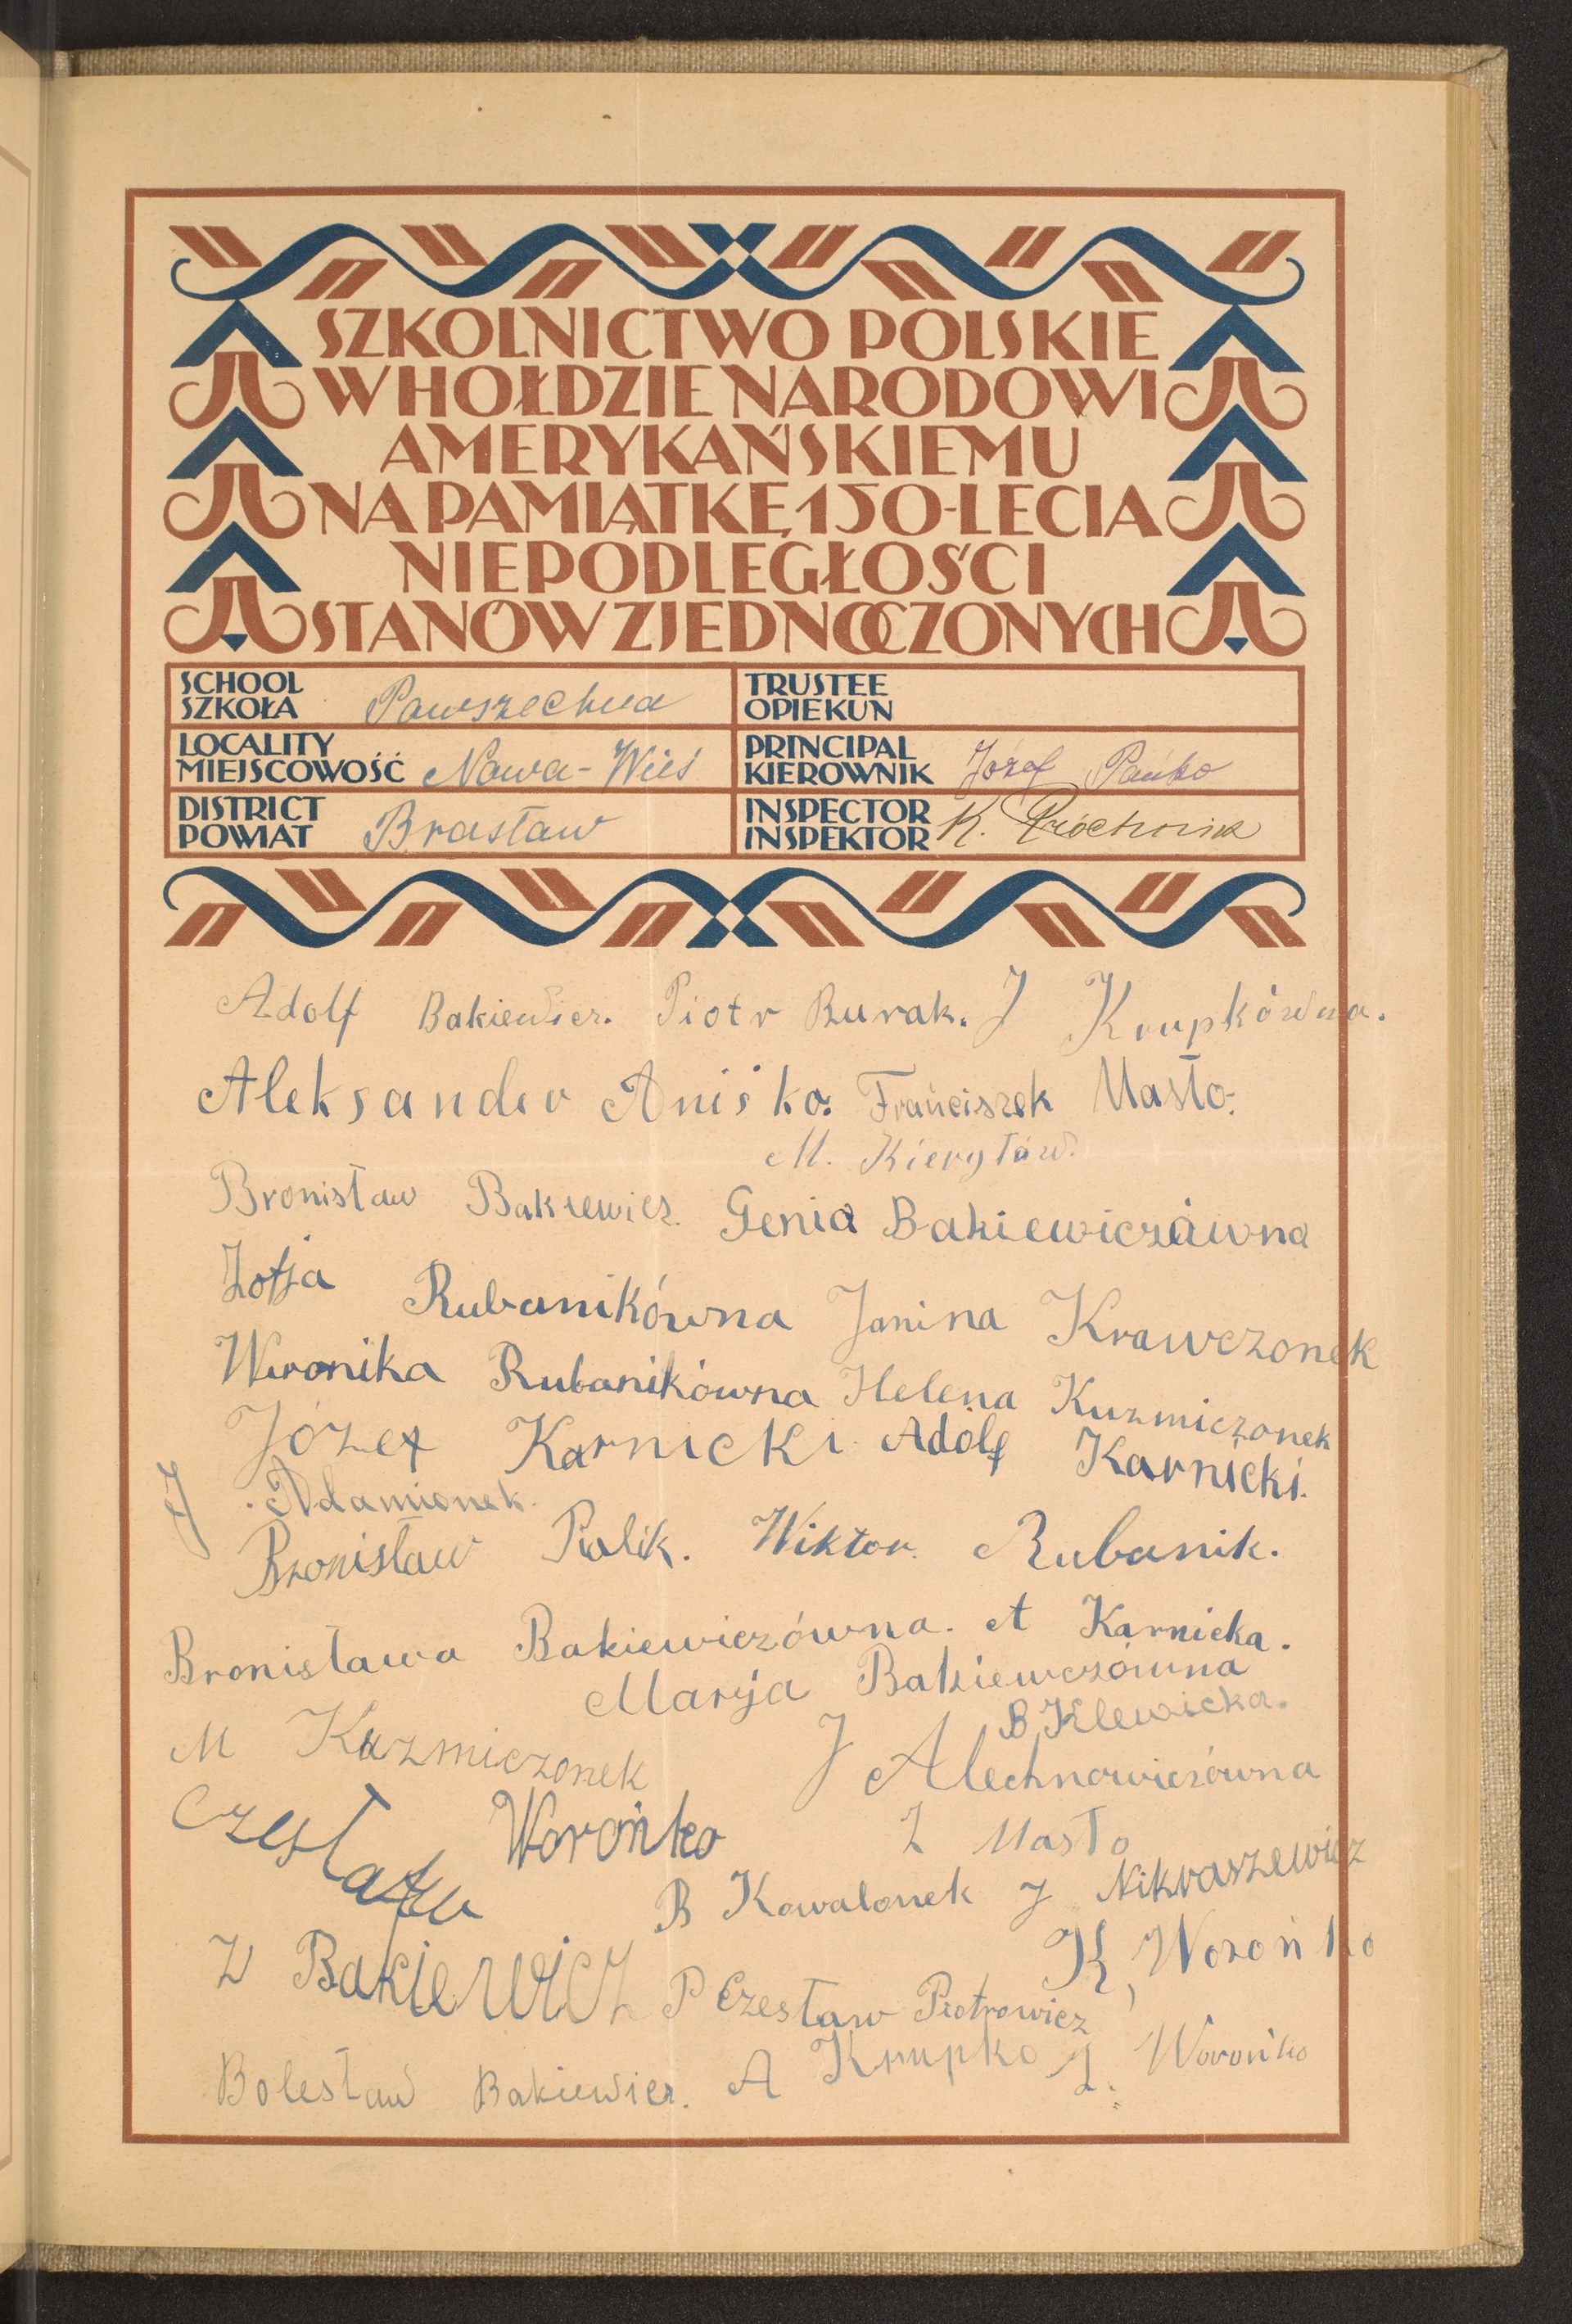 SZKOLNICTWO POLSKIE
W HOŁDZIE NARODOWI
AMERYKAŃSKIEMU
NA PAMIĄTKĘ 150-LECIA
NIEPODLEGŁOŚCI
STANÓW ZJEDNOCZONYCH
SCHOOL
SZKOŁA Powszechna
TRUSTEE
OPIEKUN
LOCALITY
MIEJSCOWOŚĆ Nowa-Wieś
PRINCIPAL
KIEROWNIK Józef Pańko
DISTRICT
POWIAT Brasław
INSPECTOR
INSPEKTOR K. Próchnik
Adolf Bakiewicz. Piotr Burak. J Krupkówna.
Aleksander Aniśko. Franciszek Masło.
M. Kieryłów.
Bronisław Bakiewicz. Genia Bakiewiczówna
Zofja Rubanikówna Janina Krawczonek
Weronika Rubanikówna Helena Kuzmiczonek
Józef Karnicki. Adolf Karnicki.
J. Adamionek.
Bronisław Rulik. Wiktor Rubanik.
Bronisława Bakiewiczówna. A Karnicka.
Marja Bakiewczówna
B. Klewicka.
M Kuzmiczonek J Alechnowiczówna
Czesław Worońko Z Masło
B Kowalonek J Nikraszewicz
W Bakiewicz K, Worońko
P Czesław Piotrowicz
Bolesław Bakiewicz. A Krupko J. Worońko